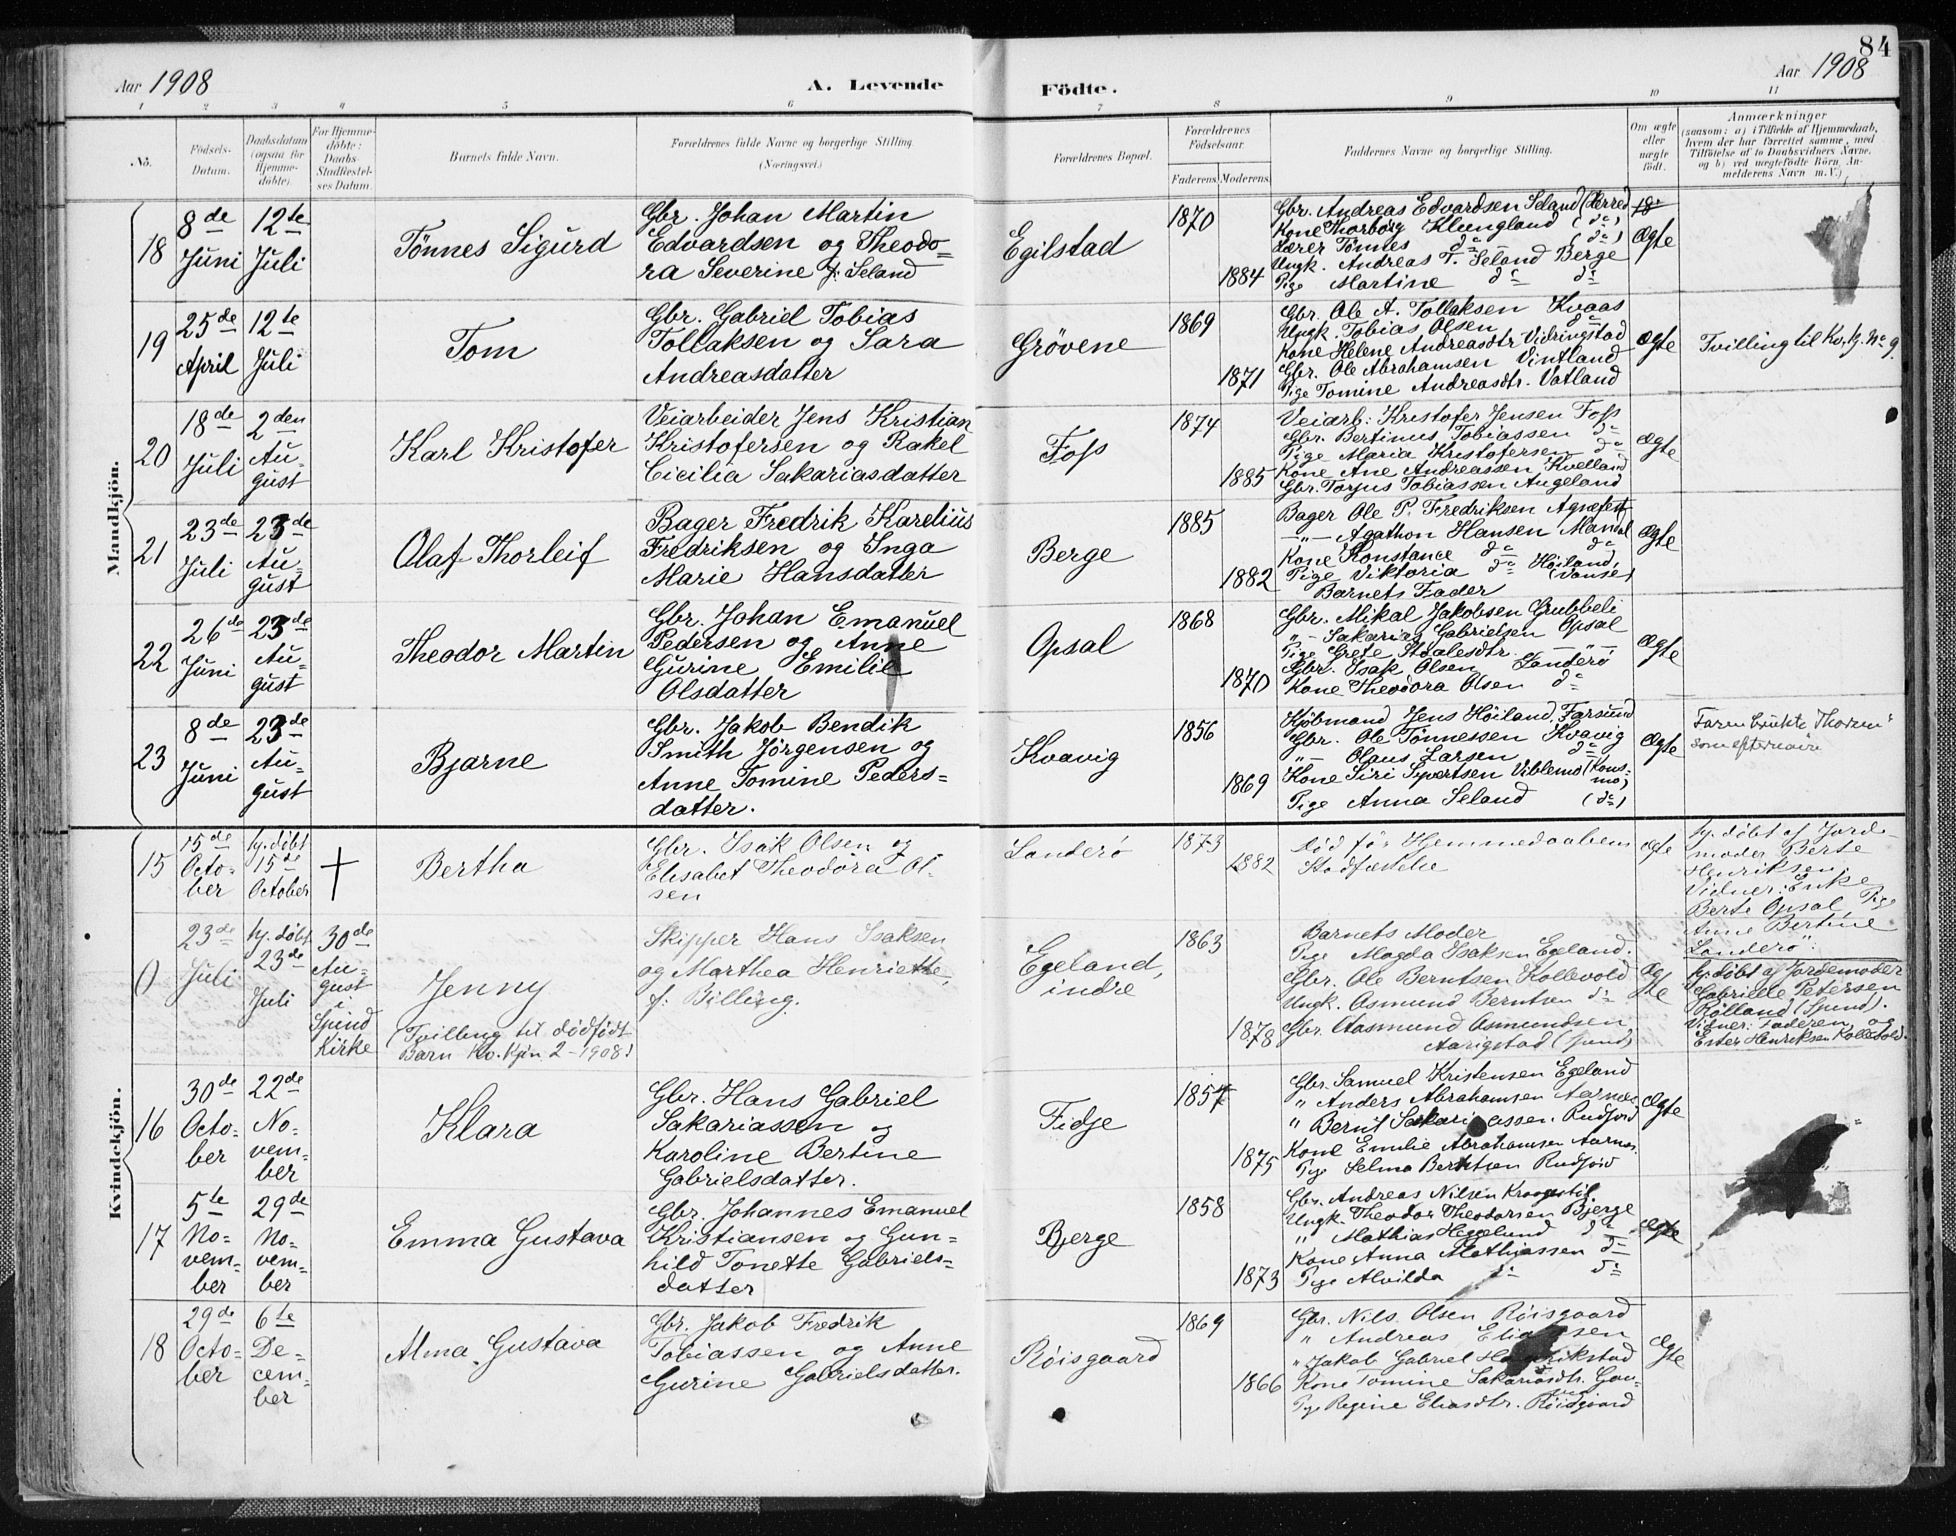 84
Aar 1908
A. Levende
Födte.
Aar 1908
1 2 3 4 5 6 7 8 9 10 11
No.
Födsels-
Datum.
Daabsdatum
(ogsaa for
Hjemme-
döbte).
For Hjemme-
döbte:
Daabs-
Stadfæstel-
ses Datum.
Barnets fulde Navn.
Forældrenes fulde Navne og borgerlige Stilling.
(Næringsvei.)
Forældrenes Bopæl.
Forældrenes
Födselsaar.
Faderens
Moderens
Faddernes Navne og borgerlige Stilling.
Om ægte
eller
uægte
födt.
Anmærkninger
(saasom: a) i Tilfælde af Hjemmedaab,
hvem der har forrettet samme, med
Tilföielse af to Daabsvidners Navne,
og b) ved uægtefödte Börn, An-
melderens Navn m. V.)
Mandkjön.
18
8de
Juni
12te
Juli
Tønnes Sigurd
Gbr. Johan Martin
Edvardsen og Theodo-
ra Severine f. Seland
Egilstad
1870
1884
Gbr. Andreas Edvardsen Seland (Herred
Kone Thorborg Klungland (do)
Lærer Tønnes do (do)
Ungk. Andreas T. Seland Berge
Pige Martine do do
18
Ægte
19
25de
April
12te
Juli
Tom
Gbr. Gabriel Tobias
Tollaksen og Sara
Andreasdatter
Grövene
1869
1871
Gbr. Ole A. Tollaksen Kvaas
Ungk. Tobias Olsen do
Kone Helene Andreasdtr Vidringstad
Gbr. Ole Abrahamsen Vintland
Pige Tomine Andreasdtr. Vatland
Ægte
Tvilling til Kv. kj. No 9.
20
18de
Juli
2den
Au-
gust
Karl Kristofer
Veiarbeider Jens Kristian
Kristofersen og Rakel
Cicilia Sakariasdatter
Foss
1874
1885
Veiarb. Kristofer Jensen Foss
Gbr. Bertinus Tobiassen do
Pige Maria Kristofersen do
Kone Ane Andreassen Kvelland
Gbr. Torjus Tobiassen Augeland
Ægte
21
23de
Juli
23de
Au-
gust
Olaf Thorleif
Bager Fredrik Karelius
Fredriksen og Inga
Marie Hansdatter
Berge
1885
1882
Bager Ole P. Fredriksen Agnefest
—"— Agathon Hansen Mandal
Kone Konstance do do
Pige Viktoria do Höiland,
Barnets Fader (Vanse)
Ægte
22
26de
Juni
23de
Au-
gust
Theodor Martin
Gbr. Johan Emanuel
Pedersen og Anne
Gurine Emilie
Olsdatter
Opsal
1868
1870
Gbr. Mikal Jakobsen Grubbeli
"— Sakarias Gabrielsen Opsal
Pige Grete Staalesdtr. —"—
Gbr. Isak Olsen Landerö
Kone Theodora Olsen do
Ægte
23
8de
Juni
23de
Au-
gust
Bjarne
Gbr. Jakob Bendik
Smith Jörgensen og
Anne Tomine Peders-
datter.
Kvavig
1856
1869
Kjöbmand Jens Höiland, Farsund
Gbr. Ole Tønnessen Kvavig
"— Olaus Larsen do
Kone Siri Syvertsen Viblemo (Kons-
mo)
Pige Anna Seland (do)
Ægte
Faren brukte "Thorsen"
som efternavn
Kvindekjön.
15
15de
Octo-
ber
hj. döbt
15de
October
†
Bertha
Gbr. Isak Olsen og
Elisabet Theodora Ol-
sen
Landerö
1873
1882
död før Hjemmedaabens
Stadfæstelse
Ægte
hj. döbt af Jorde-
moder Berte
Henriksen.
Vidner: Enke
Berte Opsal, Pige
Anne Bertine
Landerö".
()
23de
Juli
hj. döbt
23de
Juli
30de
Au-
gust
i
Spind
Kirke
Jenny
(Tvilling til dödfödt
Barn Kv. Kjön 2-1908)
Skipper Hans Isaksen
og Marthea Henriette,
f. Billing.
Egeland,
indre
1863
1878
Barnets Moder
Pige Magda Isaksen Egeland.
Gbr. Ole Berntsen Kollevold
Ungk. Osmund Berntsen do
Gbr. Aasmund Osmundsen,
Aarigstad (Spind)
Æg
te
hj. döbt af Jordemoder
Gabrielle Petersen
Rölland (Spind).
Vidner: Faderen og
Ester Henriksen Kollevold.
16
30de
Octo-
ber
22de
No-
vem-
ber
Klara
Gbr. Hans Gabriel
Sakariassen og
Karoline Bertine
Gabrielsdatter.
Fidje
1857
1875
Gbr. Samuel Kristensen Egeland
" Anders Abrahamsen Aarnes
" Bernt Sakariassen Rudjord
Kone Emilie Abrahamsen Aarnes
Pige Selma Berntsen Rudjord
Ægte
17
5te
No-
vem-
ber
29de
No-
vem-
ber
Emma Gustava
Gbr. Johannes Emanuel
Kristiansen og Gun-
hild Tonette Gabriels-
datter
Bjerge
1858
1873
Gbr. Andreas Nilsen
Ungk. Theodor Theodorsen Bjerge
" Mathias Heggelund do
Kone Anna Mathiassen do
Pige Alvilda do do
Ægte
18
29de
Octo-
ber
6te
De-
cem-
ber
Alma Gustava
Gbr. Jakob Fredrik
Tobiassen og Anne
Gurine Gabrielsdatter.
Röisgaard
1869
1866
Gbr. Nils Olsen Röisgaard
" Andreas
" Jakob Gabriel
Kone Tomine Sakariasdtr.
Pige Regine Eliasdtr. Röisgaard
Æg
te